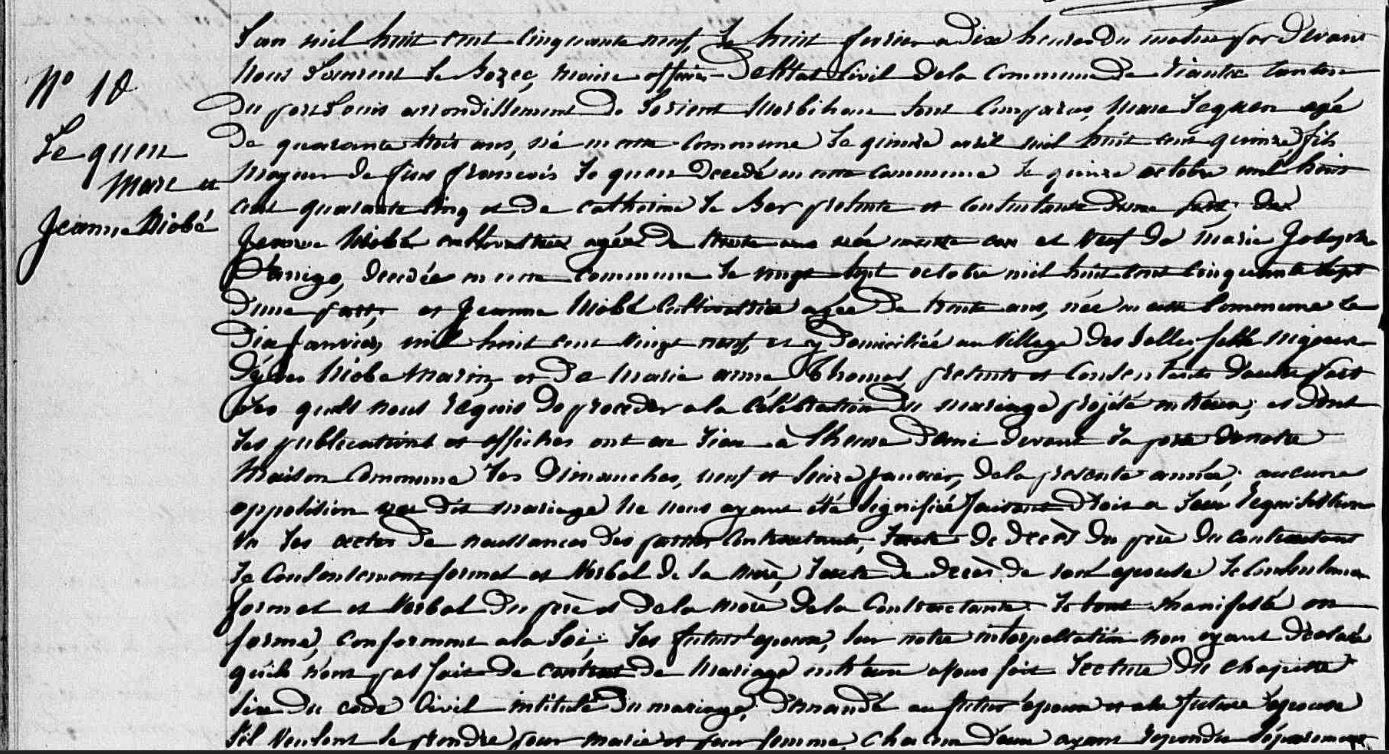 N° 10
Le quen
Marc et
Jeanne Niobé
L'an mil huit cent cinquante neuf, le huit fevrier a dix heures du matin par devant
Nous Laurent Le Bozec, maire officier de l'état Civil de la Commune de riantec canton
du port Louis arrondissement de Lorient Morbihan sont Comparus, Marc Le quen agé
De quarante trois ans, né en cette commune le quinze avril mil huit cent quinze fils
Majeur de feu françois Le quen decedé en cette Commune le quinze octobre mil huit
cent quarante cinq et de catherine Le Ber presente et contentante d'une part,
Jeanne Niobé cultivatrice agée de trente ans née et veuf de Marie Joseph
decedée en cette commune le vingt sept octobre mil huit cent cinquante sept
d'une part, et Jeanne Niobé Cultivatrice agée de trente ans, née en cette Commune le
Dix janvier mil huit cent vingt neuf, et y Domiciliée au village des Salles fille migeure
de Niobé Marin et de Marie anne Thomas presents et Consentants d'autre part
Les quels nous requis de proceder a la Célébration du mariage projeté entr'eux, et dont
les publications et affiches ont eu lieu à l'heure de midi devant la porte de notre
Maison Commune les dimanches, neuf et seize janvier, de la presente année, aucune
opposition au dit mariage ne nous ayant été signifiée faisant droit a leur requisition
Vu les actes de naissances des parties Contractantes, l'acte de decès du père du contractant
le Consentement formel et Verbal de sa mère, l'acte de decès de son epouse le Consentement
formel et Verbal du père et de la mère de la Contractante. Le tout manifesté en
forme, conforment a la Loi, Les futurs epoux, sur notre interpellation nous ayant déclaré
qu'ils n'ont pas fait de contrat de Mariage entr'eux apres fait lecture du chapitre
Six du code Civil intitulé du mariage, demandé au futur époux et a la future épouse
s'il veulent se prendre pour mari et pour femme, chacun d'eux ayant repondu séparement